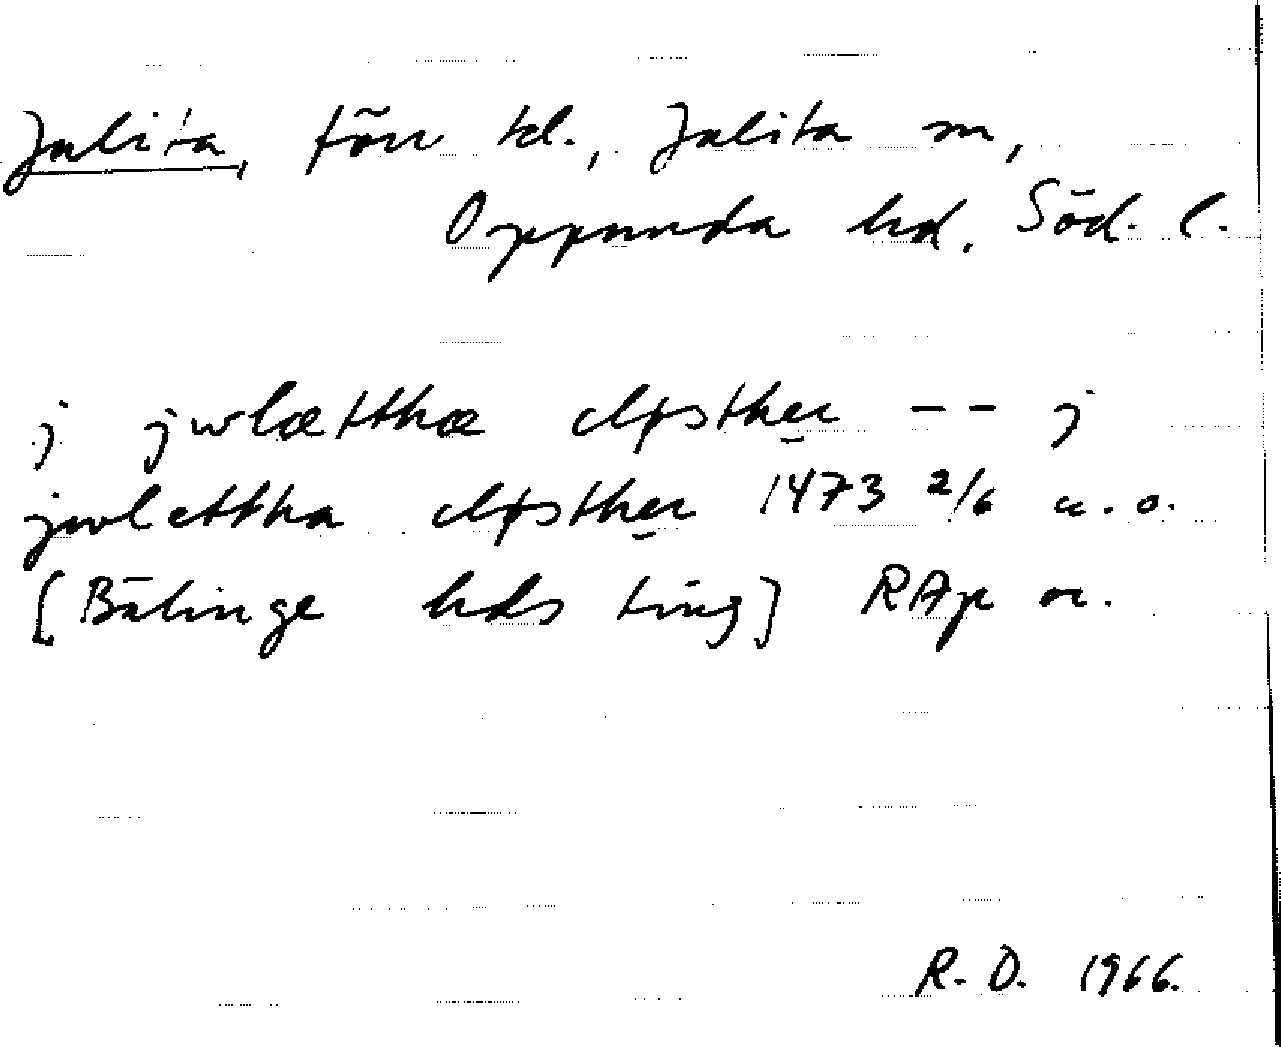 Julita, förr kl., Julita sn,
Oppunda hd. Söd. l.
j jwlætthæ clösther -- j
jwlettha clösther 1473 2/6 u. o.
[Bälinge hds ting] RAp or.
R. D. 1966.